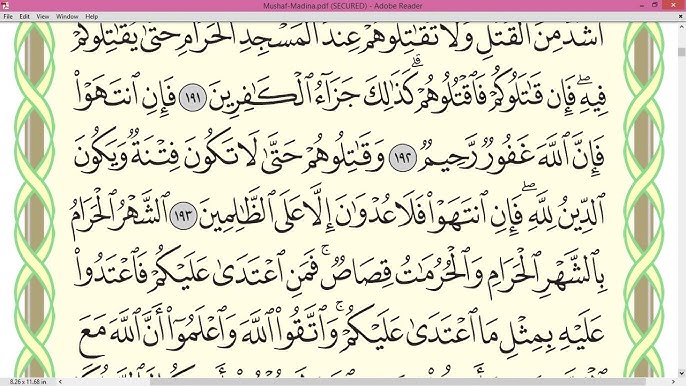 Mushaf-Madina.pdf (SECURED) - Adobe Reader
File Edit View Window Help
أَشَدُّ مِنَ ٱلْقَتْلِ وَلَا تُقَٰتِلُوهُمْ عِندَ ٱلْمَسْجِدِ ٱلْحَرَامِ حَتَّىٰ يُقَٰتِلُوكُمْ
فِيهِۖ فَإِن قَٰتَلُوكُمْ فَٱقْتُلُوهُمْۗ كَذَٰلِكَ جَزَآءُ ٱلْكَٰفِرِينَ ١٩١ فَإِنِ ٱنتَهَوْا۟
فَإِنَّ ٱللَّهَ غَفُورٌ رَّحِيمٌ ١٩٢ وَقَٰتِلُوهُمْ حَتَّىٰ لَا تَكُونَ فِتْنَةٌ وَيَكُونَ
ٱلدِّينُ لِلَّهِۖ فَإِنِ ٱنتَهَوْا۟ فَلَا عُدْوَٰنَ إِلَّا عَلَى ٱلظَّٰلِمِينَ ١٩٣ ٱلشَّهْرُ ٱلْحَرَامُ
بِٱلشَّهْرِ ٱلْحَرَامِ وَٱلْحُرُمَٰتُ قِصَاصٌۚ فَمَنِ ٱعْتَدَىٰ عَلَيْكُمْ فَٱعْتَدُوا۟
عَلَيْهِ بِمِثْلِ مَا ٱعْتَدَىٰ عَلَيْكُمْۚ وَٱتَّقُوا۟ ٱللَّهَ وَٱعْلَمُوٓا۟ أَنَّ ٱللَّهَ مَعَ
8.26 x 11.68 in